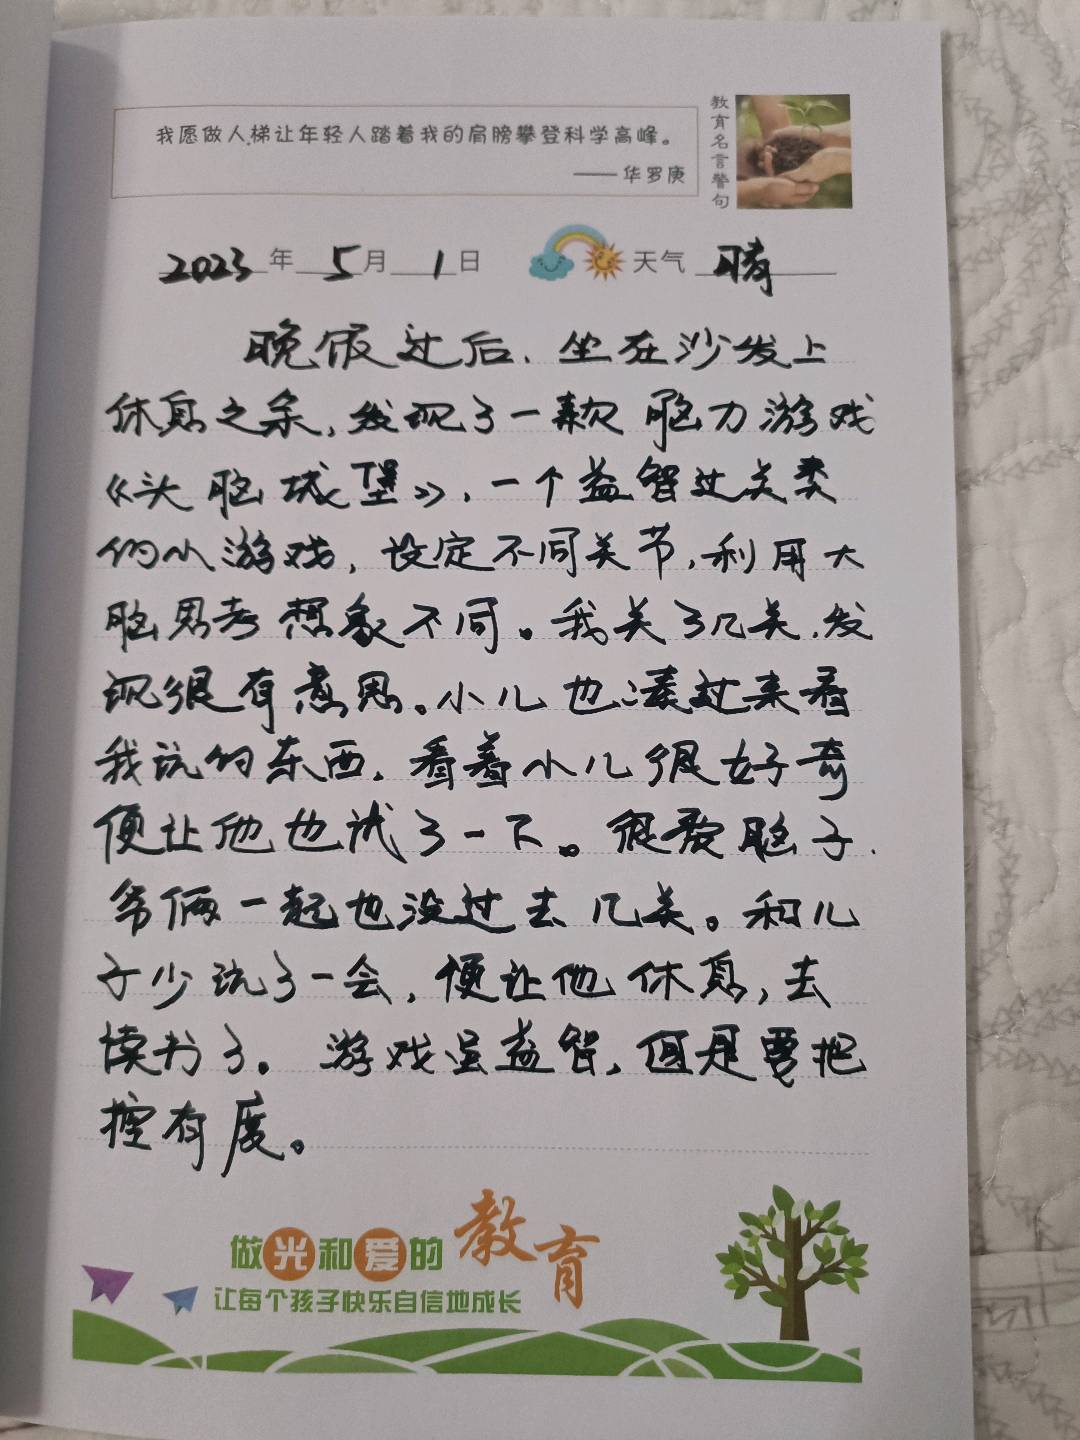 我愿做人梯让年轻人踏着我的肩膀攀登科学高峰。
——华罗庚
教育名言警句
2023年5月1日 天气 晴
晚饭过后，坐在沙发上
休息之余，发现了一款脑力游戏
《头脑城堡》，一个益智过关类
的小游戏，设定不同关节，利用大
脑思考想象不同。我关了几关，发
现很有意思。小儿也凑过来看
我玩的东西，看着小儿很好奇
便让他也试了一下。很费脑子，
爷俩一起也没过去几关。和儿
子少玩了一会，便让他休息，去
读书了。游戏虽益智，但是要把
控有度。
做光和爱的教育
让每个孩子快乐自信地成长